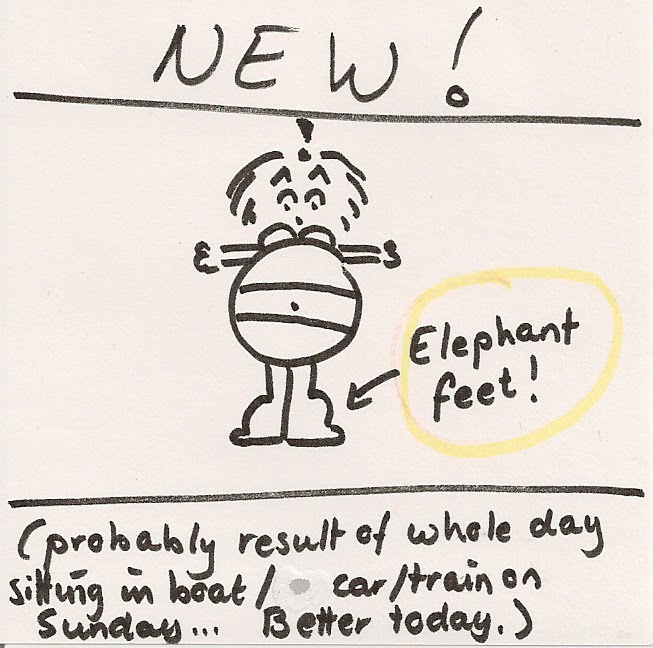 NEW!
Elephant
feet!
(probably result of whole day
sitting in boat/ car/train on
Sunday... Better today.)